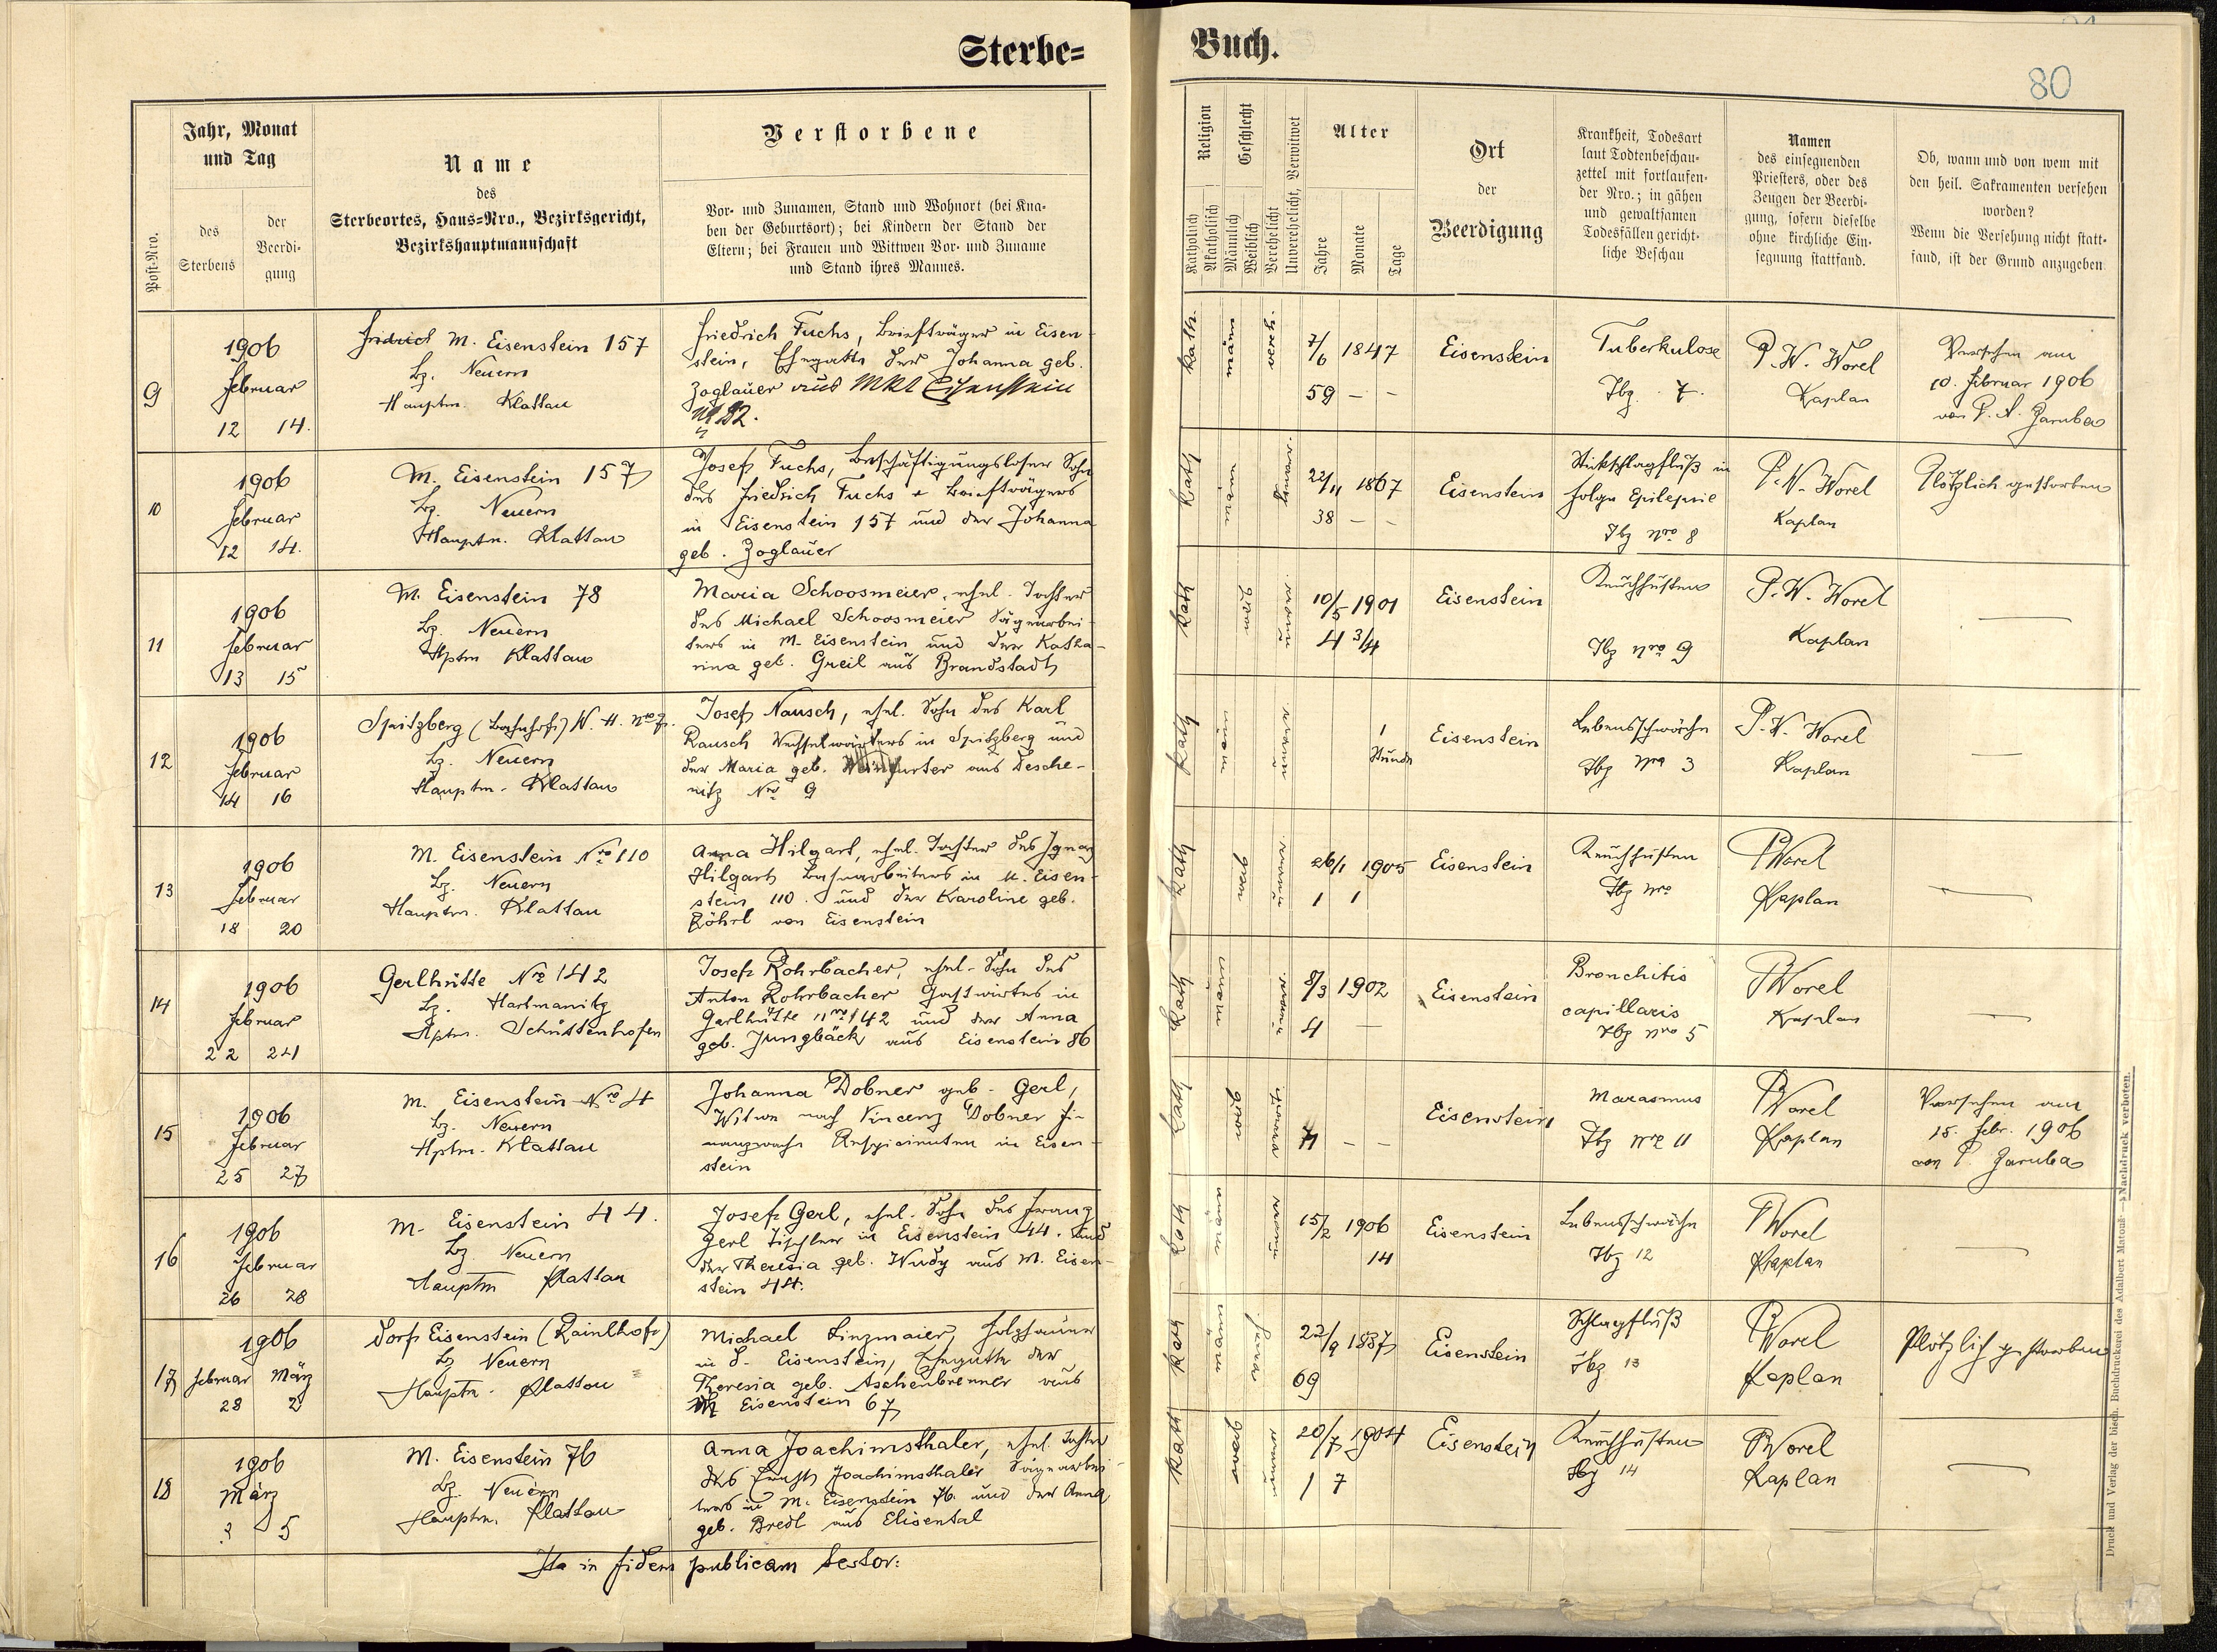 Sterbe=
Buch.
80
Jahr, Monat
und Tag
Post-Nro.
des
Sterbens
der
Beerdi-
gung
Name
des
Sterbeortes, Haus=Nro., Bezirksgericht,
Bezirkshauptmannschaft
Verstorbene
Vor- und Zunamen, Stand und Wohnort (bei Kna-
ben der Geburtsort); bei Kindern der Stand der
Eltern; bei Frauen und Wittwen Vor- und Zuname
und Stand ihres Mannes.
Religion
Katholisch
Akatholisch
Geschlecht
Männlich
Weiblich
Verehelicht
Unverehelicht, Verwitwet
Alter
Jahre
Monate
Tage
Ort
der
Beerdigung
Krankheit, Todesart
laut Todtenbeschau-
zettel mit fortlaufen-
der Nro.; in gähen
und gewaltsamen
Todesfällen gericht-
liche Beschau
Namen
des einsegnenden
Priesters, oder des
Zeugen der Beerdi-
gung, sofern dieselbe
ohne kirchliche Ein-
segnung stattfand.
Ob, wann und von wem mit
den heil. Sakramenten versehen
worden?
Wenn die Versehung nicht statt-
fand, ist der Grund anzugeben
9
1906
Februar
12 14.
M. Eisenstein 157
Bz. Neuern
Hauptm. Klattau
Friedrich Fuchs, Briefträger in Eisen-
stein, Ehegatte der Johanna geb.
Zoglauer aus Mkt Eisenstein
Nr 82.
Kath.
männ
7/6 1847
59 – –
Eisenstein
Tuberkulose
Tbz. 7.
P. W. Worel
Kaplan
Versehen am
10. Februar 1906
von P. A. Jaruba
10
1906
Februar
12 14.
M. Eisenstein 157
Bz. Neuern
Hauptm. Klattau
Josef Fuchs, beschäftigungsloser Sohn
des Friedrich Fuchs Briefträgers
in Eisenstein 157 und der Johanna
geb. Zoglauer
Kath
22/11 1867
38 – –
Eisenstein
Stickschlagfluß in
folge Epilepsie
Tbz Nro 8
P. W. Worel
Kaplan
Plötzlich gestorben
11
1906
Februar
13 15
M. Eisenstein 78
Bz. Neuern
Hptm Klattau
Maria Schoosmeier, ehel. Tochter
des Michael Schoosmeier Sägearbei-
ters in M. Eisenstein und der Katha-
rina geb. Greil aus Brandstadt
Kath
10/5 1901
4 3/4
Eisenstein
Keuchhusten
Tbz Nro 9
P. W. Worel
Kaplan
12
1906
Februar
14 16
Spitzberg (Bahnhof) W. H. Nro 7.
Bz. Neuern
Hauptm. Klattau
Josef Nausch, ehel. Sohn des Karl
Rausch Wechselwärters in Spitzberg und
der Maria geb. Weinfurter aus Desche-
nitz Nro 9
Kath
1
Stunde
Eisenstein
Lebensschwäche
Tbz Nro 3
P. W. Worel
Kaplan
13
1906
Februar
18 20
M. Eisenstein Nro 110
Bz. Neuern
Hauptm. Klattau
Anna Hilgart, ehel. Tochter des Ignaz
Hilgart Bahnarbeiters in M. Eisen-
stein 110. und der Karoline geb.
Röhrl von Eisenstein
Kath
26/1 1905
1 1
Eisenstein
Keuchhusten
Tbz Nro
P Worel
Kaplan
14
1906
Februar
22 24
Gerlhütte Nro 142
Bz. Hartmanitz
Hptm. Schüttenhofen
Josef Rohrbacher, ehel. Sohn des
Anton Rohrbacher Gastwirtes in
Gerlhütte Nro 142 und der Anna
geb. Jungbäck aus Eisenstein 86
Kath
8/3 1902
4 –
Eisenstein
Bronchitis
capillaris
Tbz Nro 5
P Worel
Kaplan
15
1906
Februar
25 27
M. Eisenstein Nro 4
Bz. Neuern
Hptm. Klattau
Johanna Dobner geb. Gerl,
Witwe nach Vincenz Dobner Fi-
nanzwach Respicienten in Eisen-
stein
Kath
– –
Eisenstein
Marasmus
Tbz Nro 11
P Worel
Kaplan
Versehen am
15. Febr. 1906
von P. Jaruba
16
1906
Februar
26 28
M. Eisenstein 44.
Bz. Neuern
Hauptm Klattau
Josef Gerl, ehel. Sohn des Franz
Gerl Tischler in Eisenstein 44. und
der Theresia geb. Wudy aus M. Eisen-
stein 44.
Kath
15/2 1906
14
Eisenstein
Lebensschwäche
Tbz 12
P Worel
Kaplan
17
1906
Februar März
28 2
Dorf Eisenstein (Rainlhof)
Bz Neuern
Hauptm. Klattau
Michael Linzmaier, Holzhauer
in D. Eisenstein, Ehegatte der
Theresia geb. Aschenbrenner aus
M Eisenstein 67
Kath
22/9 1837
69
Eisenstein
Schlagfluß
Tbz 13
P Worel
Kaplan
Plötzlich gestorben
18
1906
März
3 5
M. Eisenstein 76
Bz. Neuern
Hauptm. Klattau
Anna Joachimsthaler, ehel. Tochter
des Ernst Joachimsthaler Sägearbei-
ters in M. Eisenstein 76. und der Anna
geb. Bredl aus Elisental
Kath
20/7 1904
1 7
Eisenstein
Keuchhusten
Tbz 14
P Worel
Kaplan
Ita in fidem publicam testor:
Druck und Verlag der bisch. Buchdruckerei des Adalbert Matouš — Nachdruck verboten.